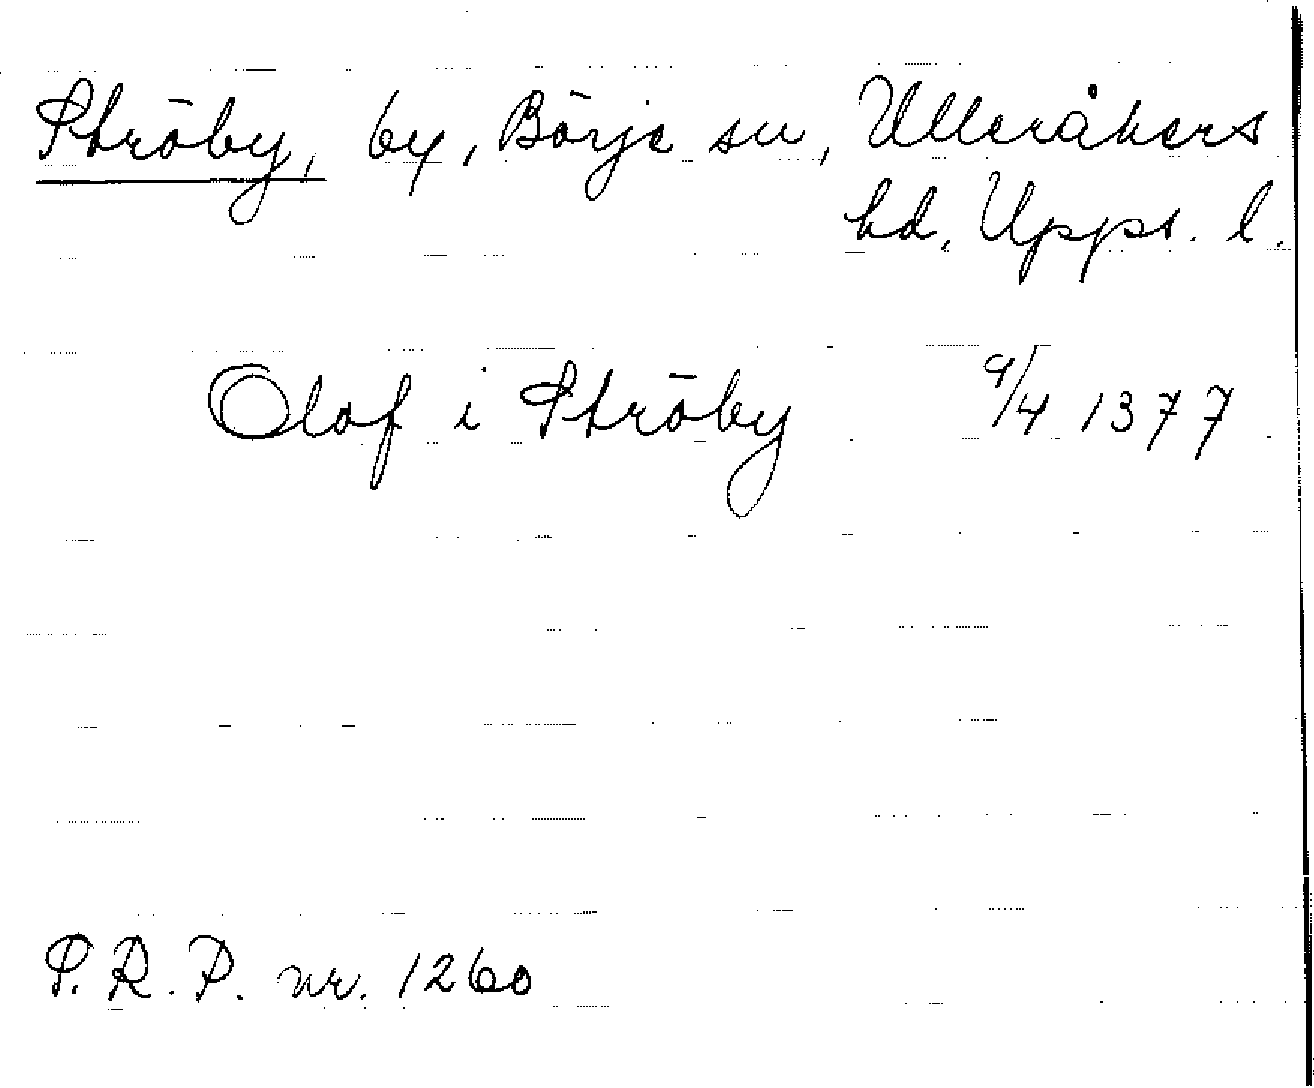 Ströby, by, Börje sn, Ulleråkers
hd, Upps. l.
Olof i Ströby 9/4 1377
S.R.P. nr. 1260